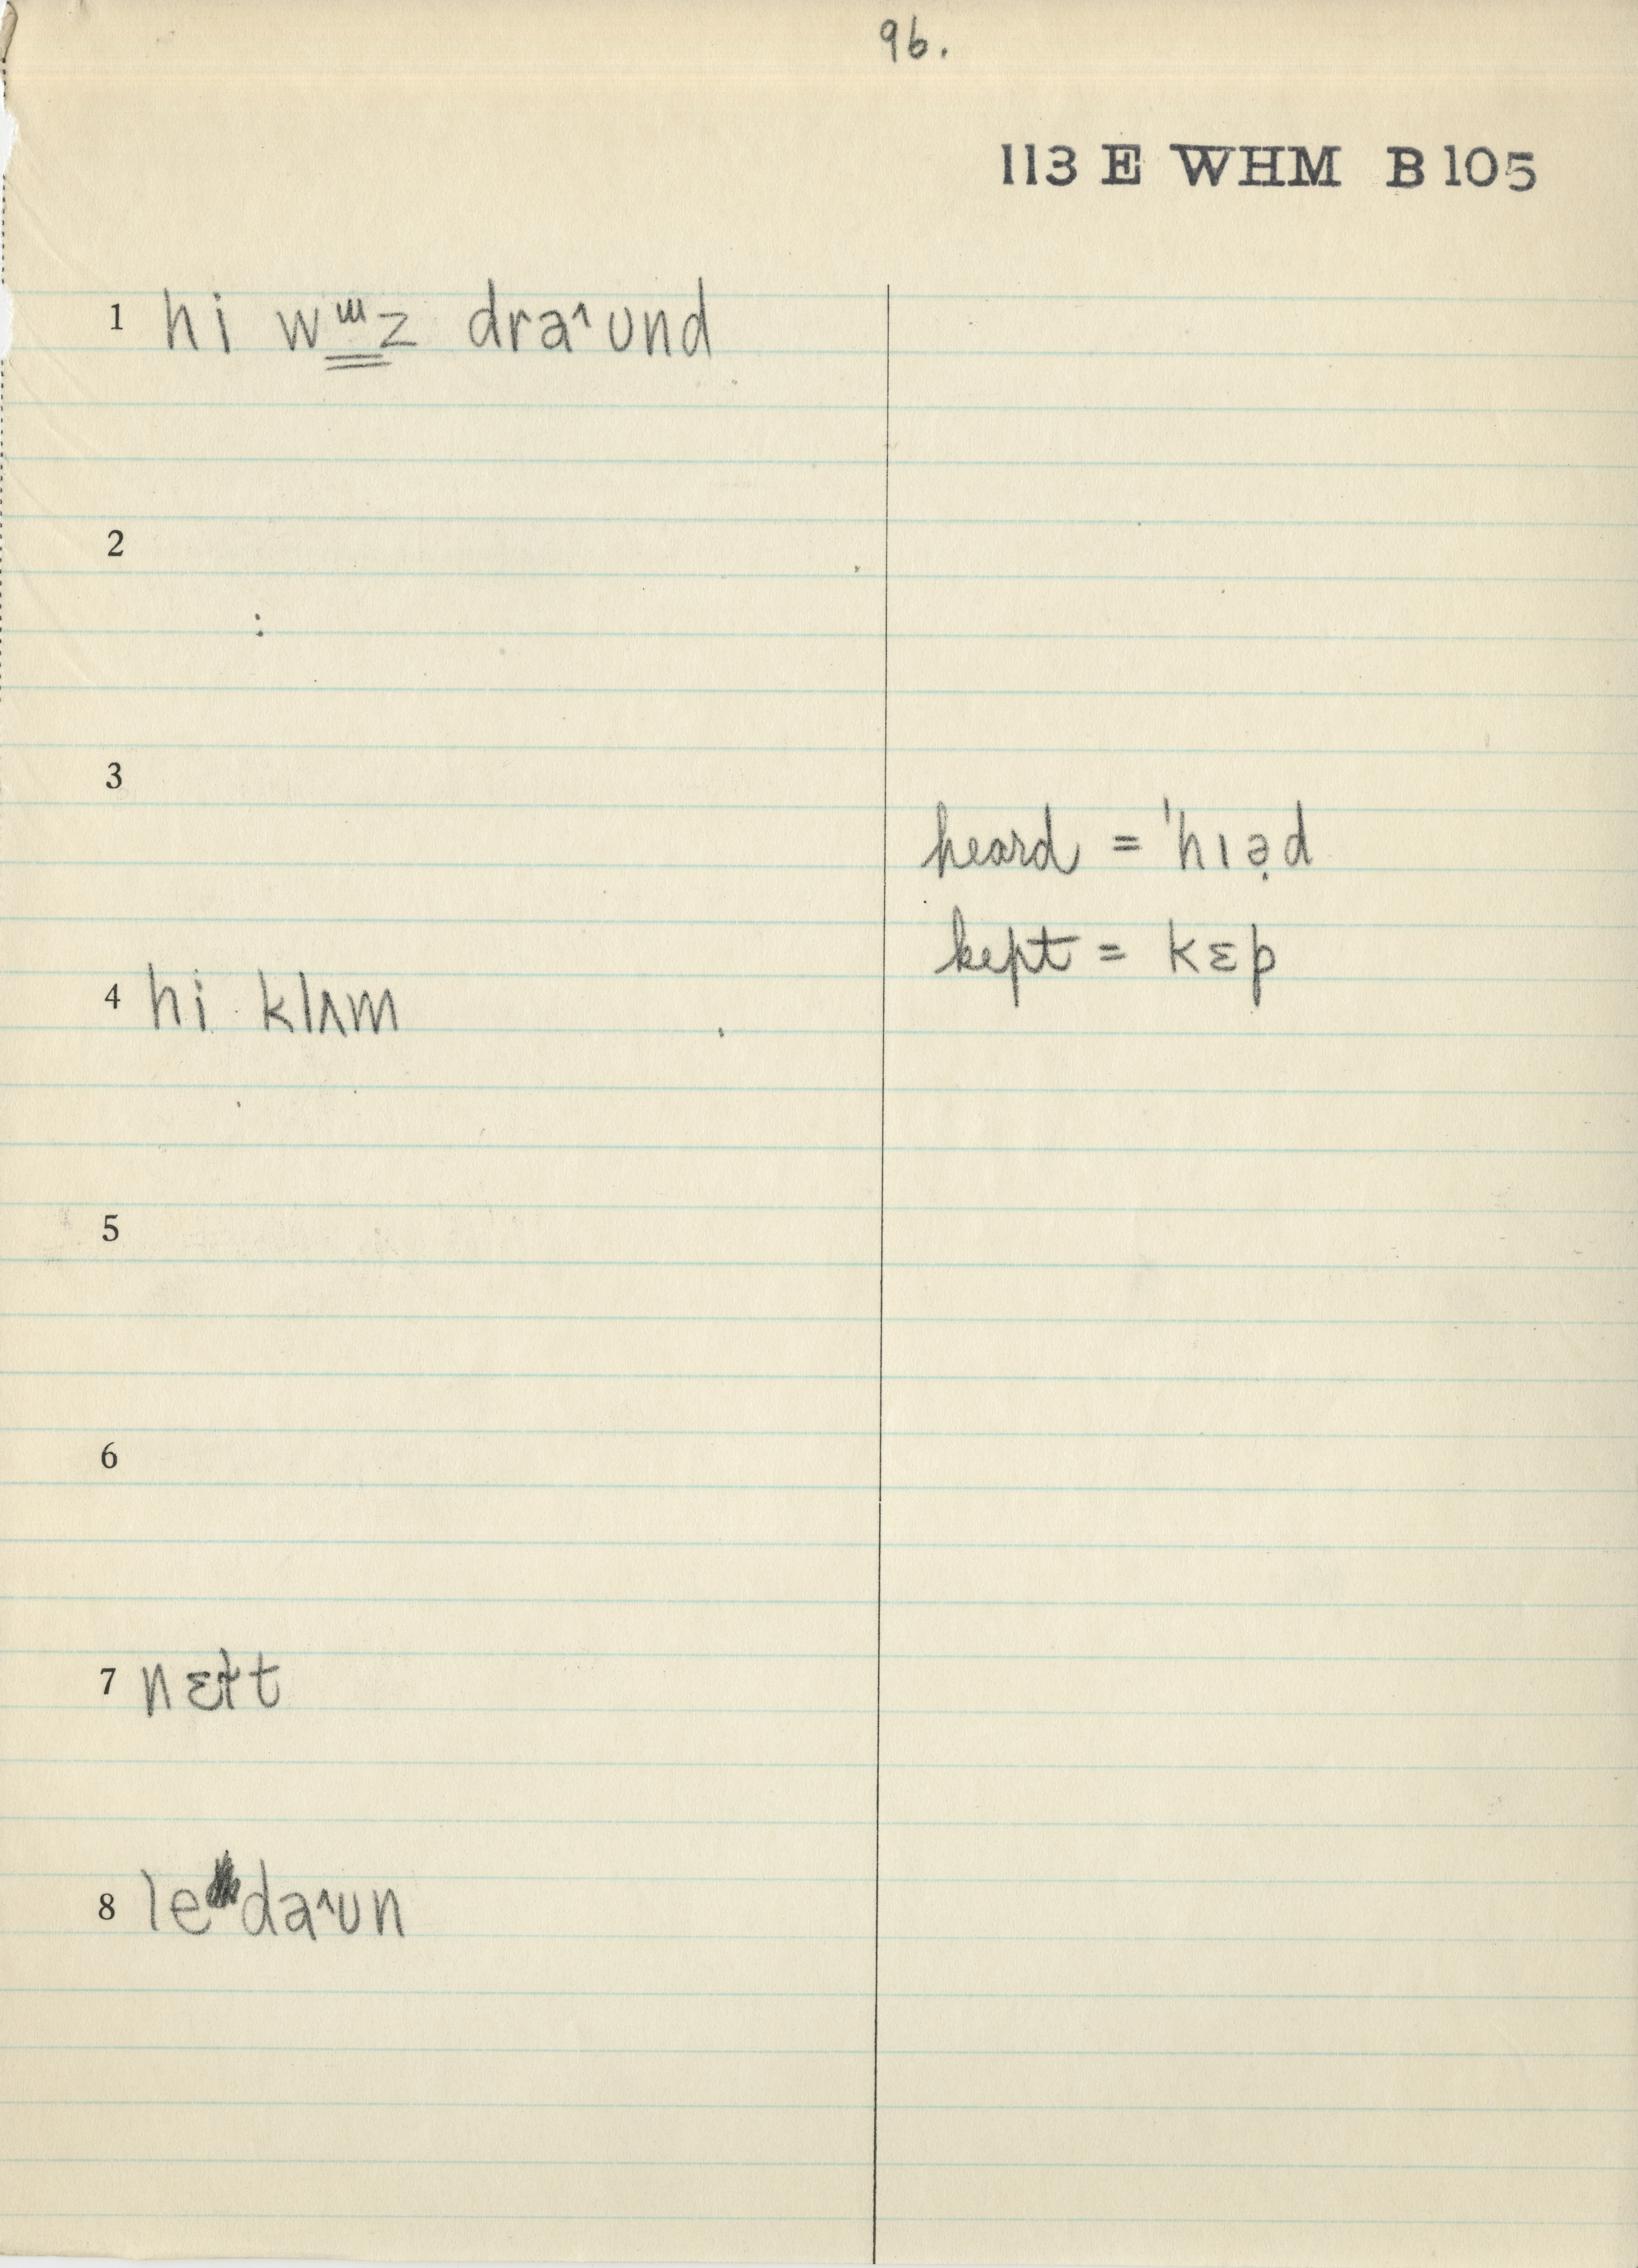 96.
113 E WHM B 105
1 hi wɯz draˆʊnd
2
3
heard = ˈhɪə̣d
kept = kɛp
4 hi klʌm
5
6
7 nɛt
8 le daˆʊn